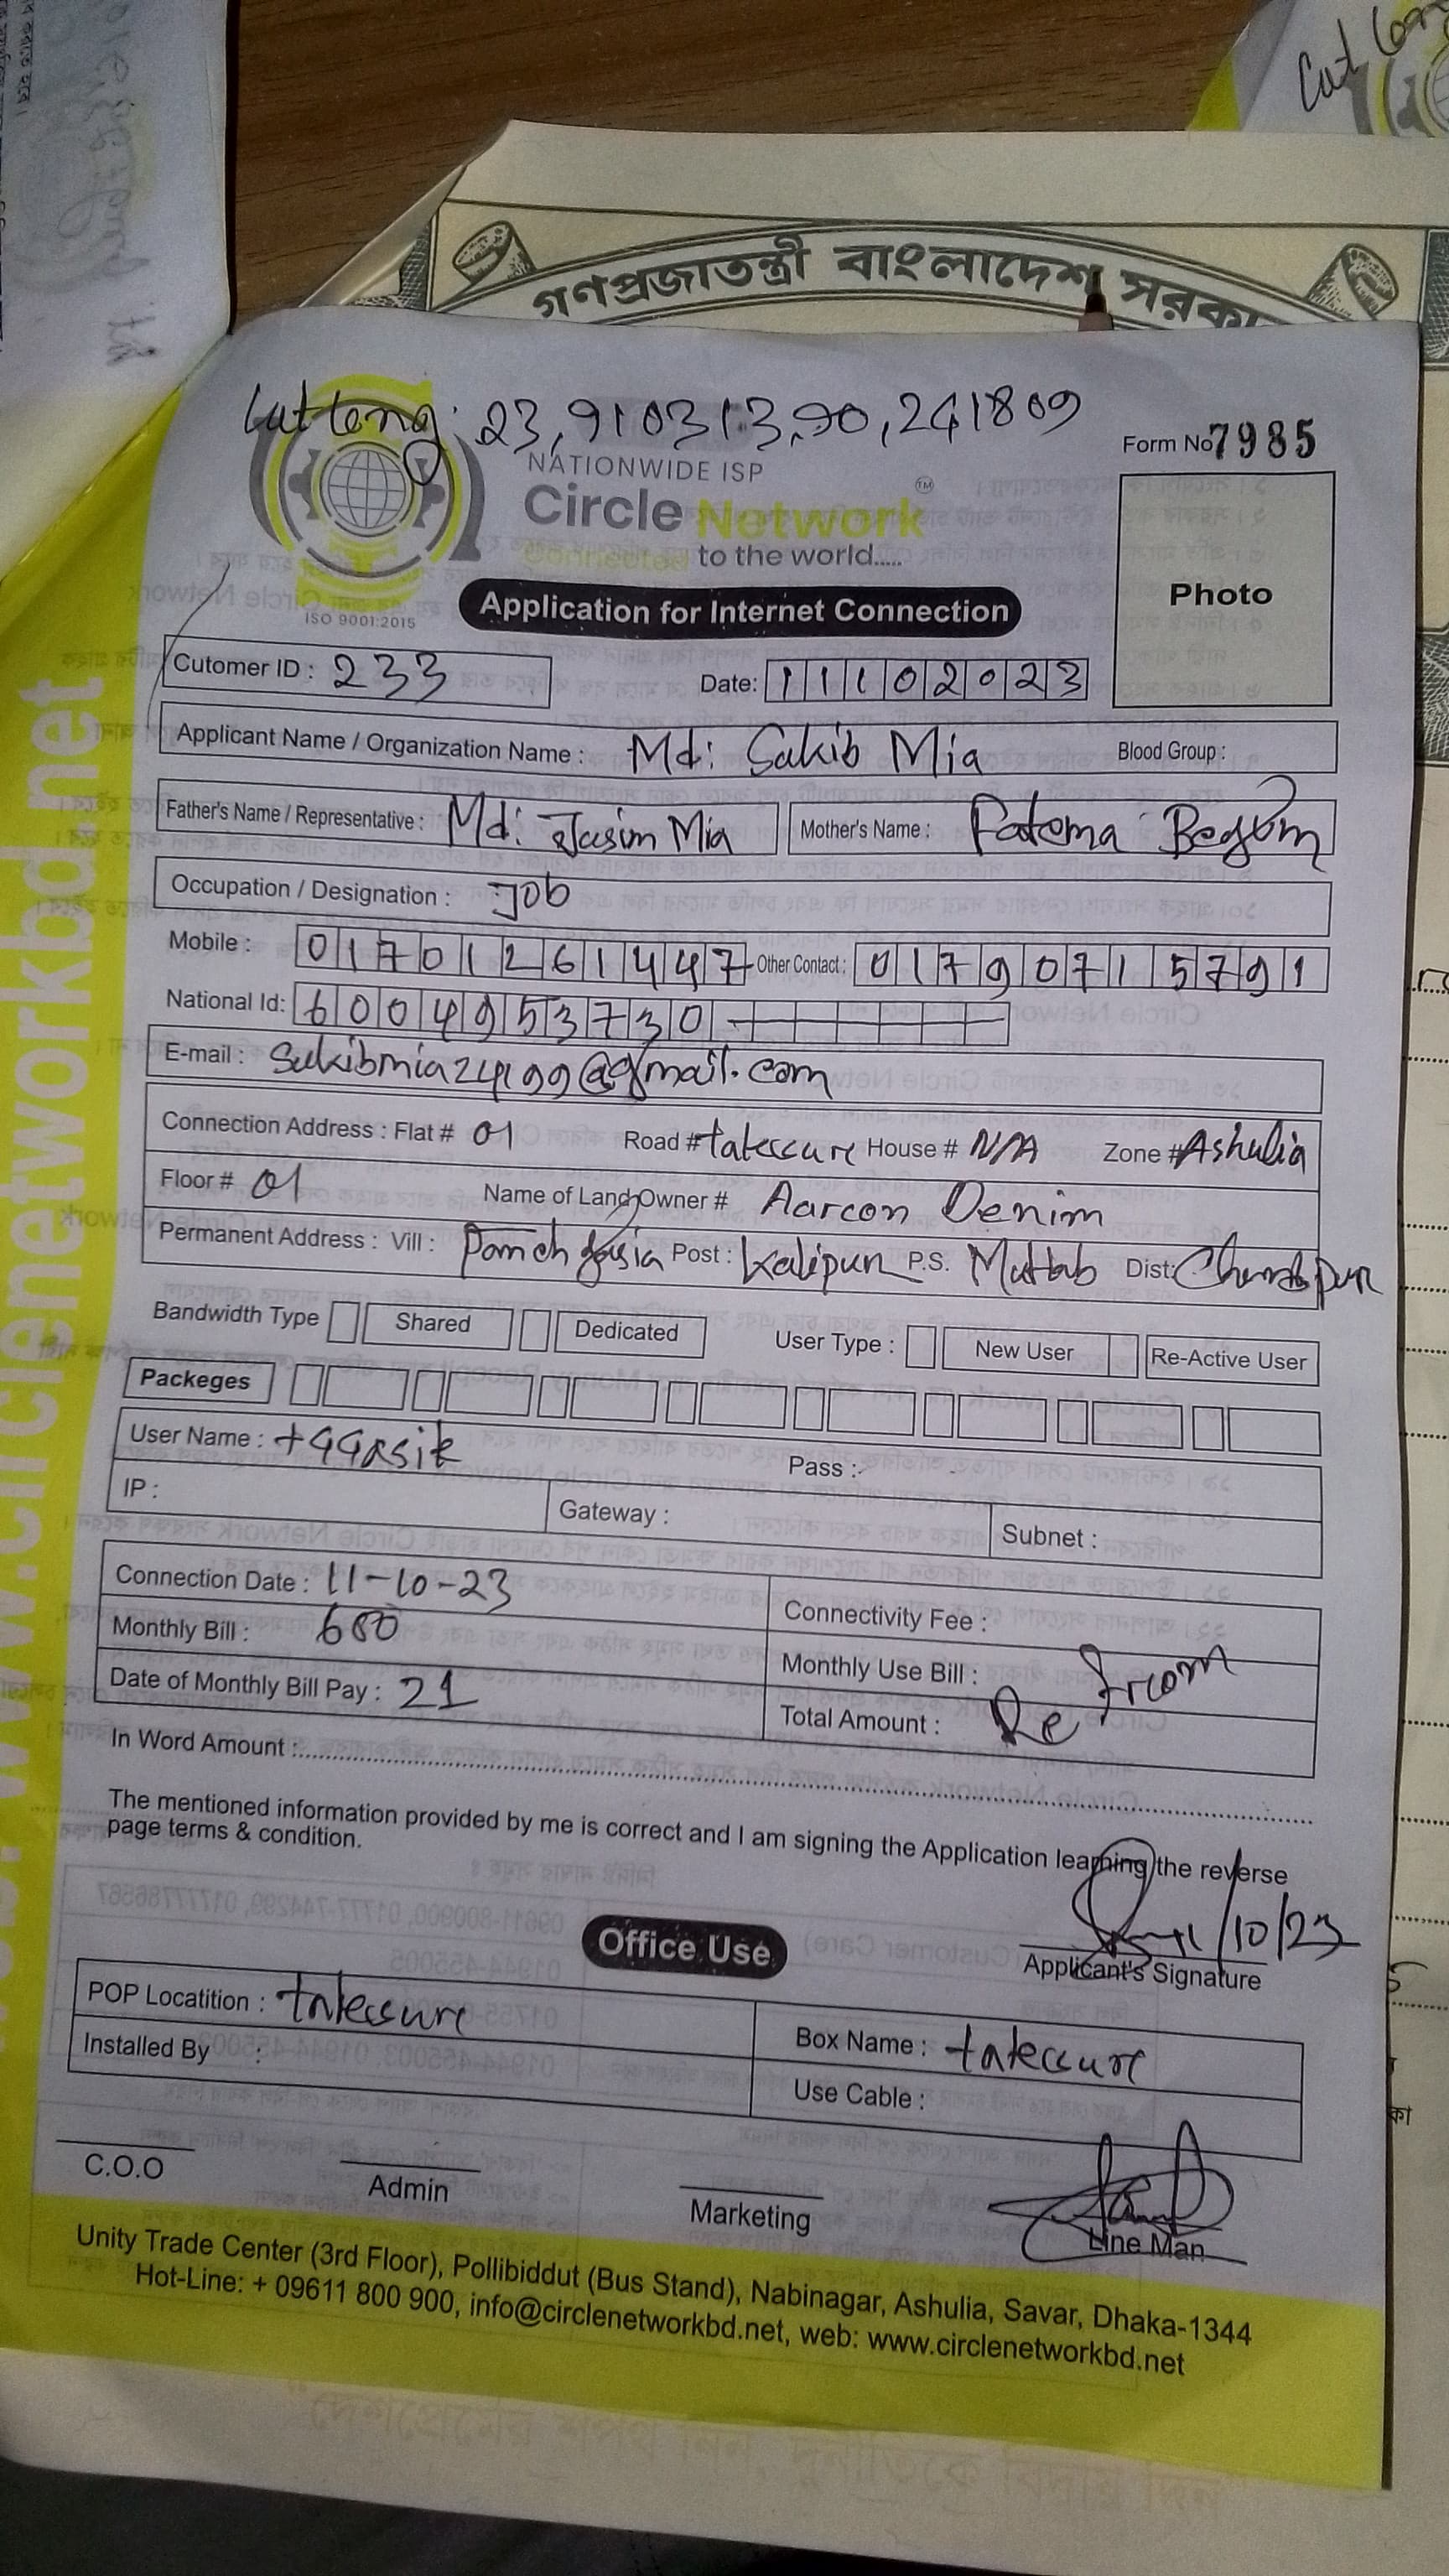 Lat Long: 23,910313,90,241809
Form No 7985
NATIONWIDE ISP
Circle Network TM
Connected to the world.....
ISO 9001:2015
Photo
Application for Internet Connection
Cutomer ID : 233 Date: 11102023
Applicant Name / Organization Name : Md: Sakib Mia Blood Group :
Father's Name / Representative : Md: Jasim Mia Mother's Name : Fatema Begum
Occupation / Designation : Job
Mobile : 01701261447 Other Contact : 01790715791
National Id: 6004953730
E-mail : Sakibmia24199@gmail.com
Connection Address : Flat # 01 Road # tatessure House # N/A Zone # Ashulia
Floor # 01 Name of Land Owner # Aarcon Denim
Permanent Address : Vill : Post : Kalipur P.S. Muttab Dist: Chandpur
Bandwidth Type Shared Dedicated User Type : New User Re-Active User
Packeges
User Name : Pass :
IP : Gateway : Subnet :
Connection Date : 11-10-23 Connectivity Fee :
Monthly Bill : 680 Monthly Use Bill :
Date of Monthly Bill Pay : 21 Total Amount : Re
In Word Amount :
The mentioned information provided by me is correct and I am signing the Application learning the reverse
page terms & condition.
11/10/23
Applicant's Signature
Office Use
POP Locatition : tatessure Box Name : tatessure
Installed By : Use Cable :
C.O.O Admin Marketing Line Man
Unity Trade Center (3rd Floor), Pollibiddut (Bus Stand), Nabinagar, Ashulia, Savar, Dhaka-1344
Hot-Line: + 09611 800 900, info@circlenetworkbd.net, web: www.circlenetworkbd.net
www.circlenetworkbd.net
গণপ্রজাতন্ত্রী বাংলাদেশ
Lat Long